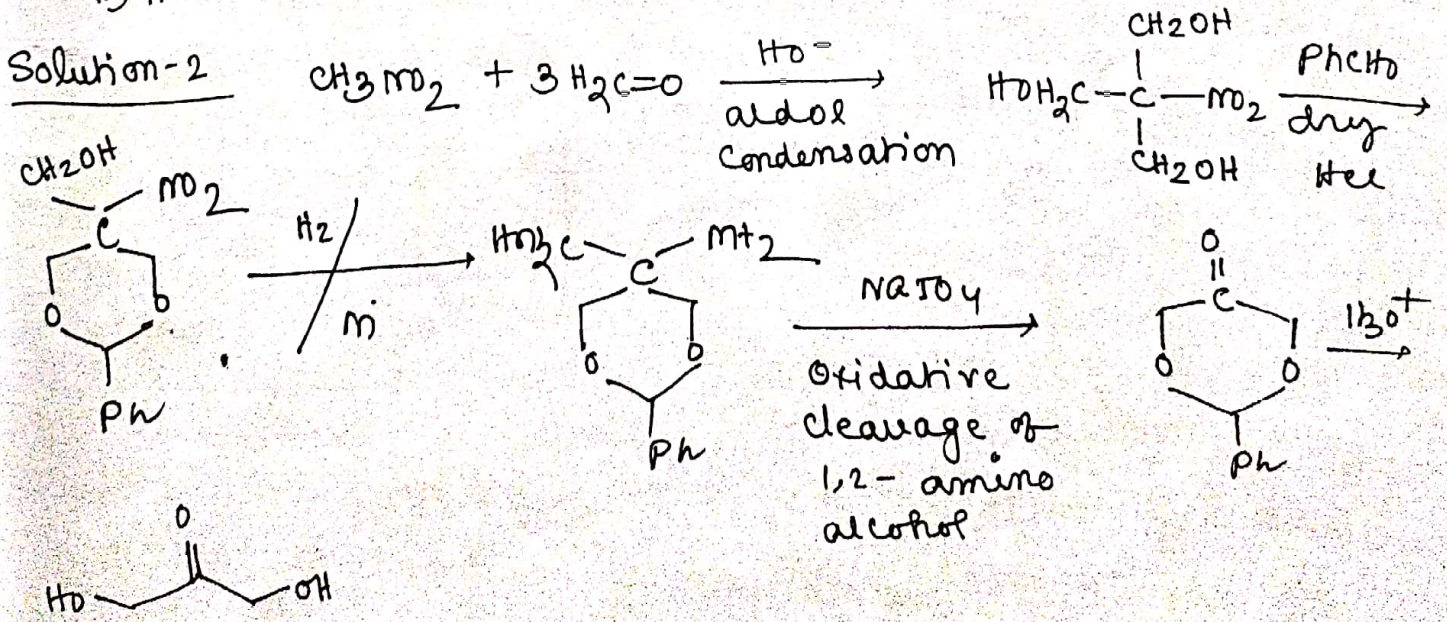 Solution-2 CH3NO2 + 3 H2C=O HO- aldol Condensation HOH2C-C-NO2 CH2OH CH2OH PhCHO dry HCl
CH2OH NO2 C O O Ph H2/Ni HOH2C C NH2 O O Ph NaIO4 Oxidative cleavage of 1,2- amino alcohol O C O O Ph H3O+
O
HO OH